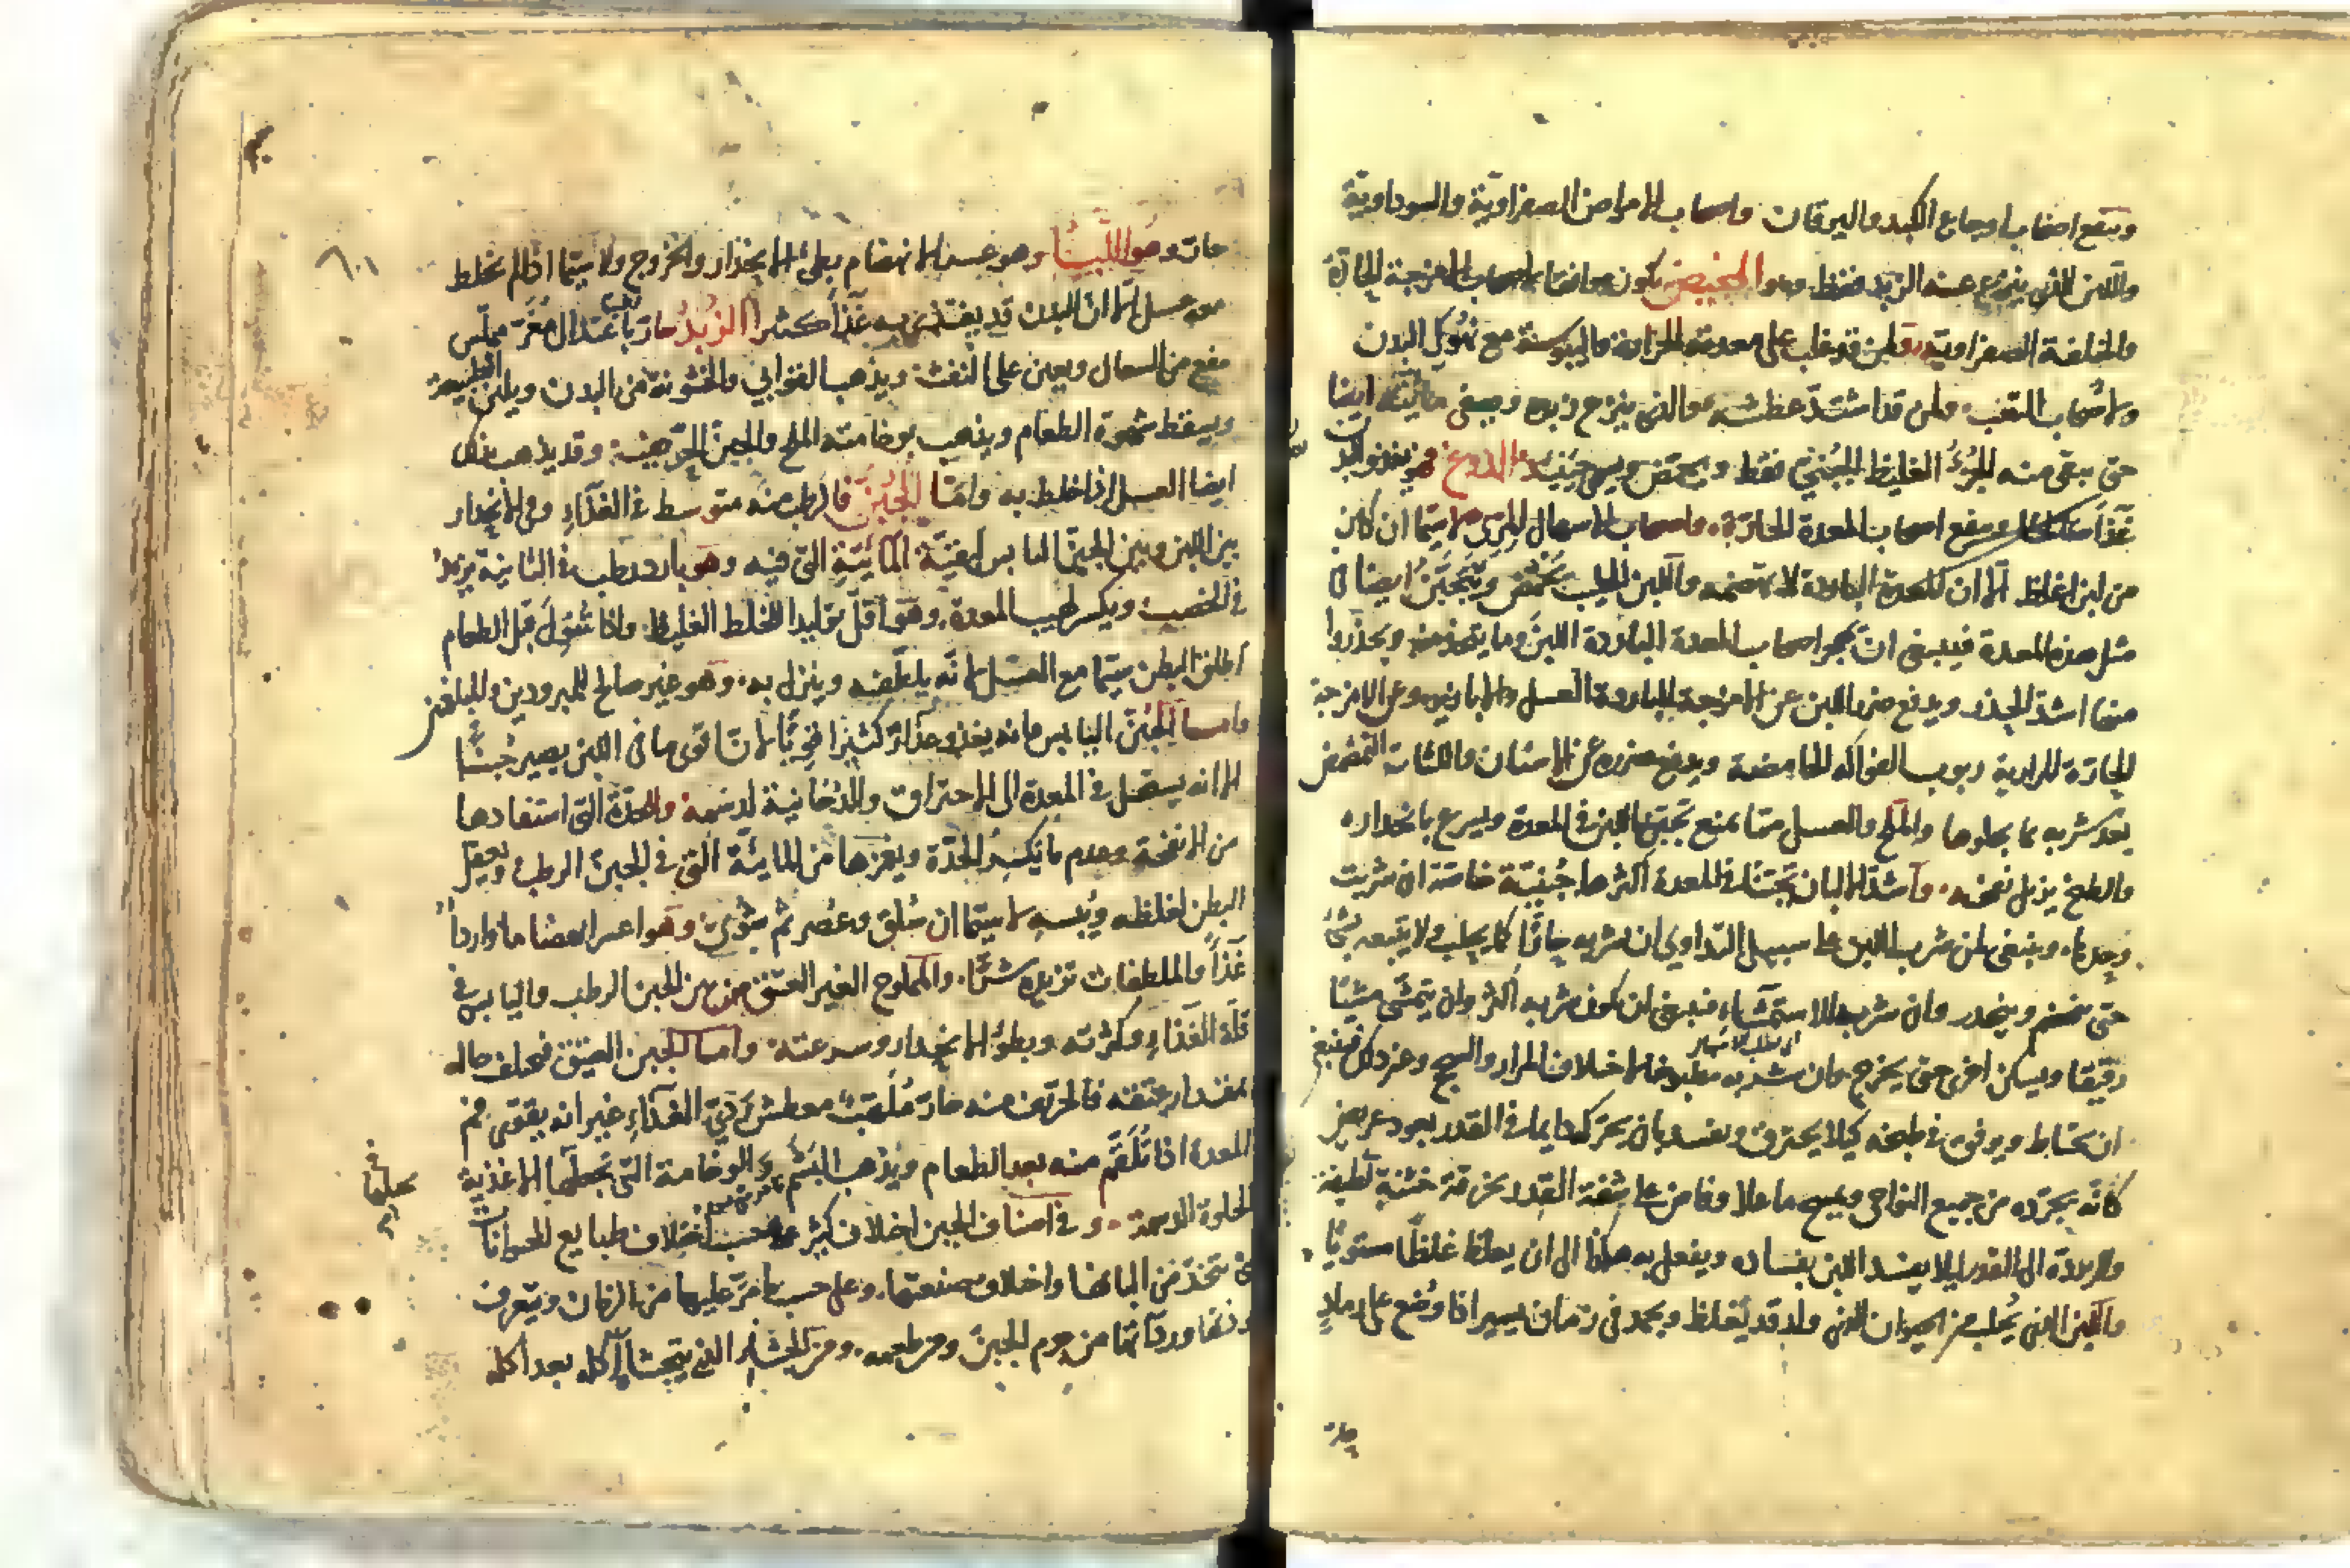 وينفع اصحاب اوجاع الكبد واليرقان واصحاب الامراض الصفراوية والسوداوية
واللبن الذي ينزع عنه الزبد فقط وهو المخيض يكون موافقا لاصحاب الامزجة الحارة
والخلفة الصفراوية ولمن قد غلب على معدته الحرارة واليبوسة مع تهزل البدن
ولاصحاب التعب ولمن قد اشتد عطشه والذي ينزع زبده ويصفى مائيته ايضا
حتى يبقى منه الجزء الغليظ الجبني فقط ويحمض ويسمى حينئذ الدوغ فهو يغذو البدن
غذاء وينفع اصحاب المعدة الحارة واصحاب الاسهال المري لا سيما ان كان
من لبن اغلظ الا ان المعدة الباردة لا تهضمه واللبن الحليب يحمض ويتجبن ايضا في
مثل هذه المعدة فينبغي ان يهجر اصحاب المعدة الباردة اللبن وما يتخذ منه ويحذروا
منها اشد الحذر ويدفع ضرر اللبن عن الامزجة الباردة العسل وعن الامزجة
الحارة المرارية ربوب الفواكه الحامضة ويدفع ضرره عن الاسنان واللثات التمضمض
بعد شربه بما يجلوها والملح والعسل مما يمنع تجبن اللبن في المعدة ويسرع بانحداره
والطبخ يزيل نفخه واشد الالبان تجبنا في المعدة اكثرها جبنية خاصة ان شربت
وحدها وينبغي لمن شرب اللبن على سبيل التداوي ان يشربه حارا كما يحلب ولا يتبعه بشيء
حتى ينهضم وينحدر وان شربه للاستمشاء فينبغي ان يكون شربه اكثر وان يتمشى مشيا
رفيقا ويسكن اخرى حتى يخرج وان شربه مطبوخا لاختلاف المرار والسحج وغير ذلك فينبغي
ان يحتاط ويوقى في طبخه كيلا يحترق ويفسد بان يحرك دايما في القدر بعود عريض
كانه يجرده من جميع النواحي ويمسح ما علا وفاض على شفة القدر بخرقة خشنة نظيفة
ولا يرده الى القدر ليلا يفسد اللبن بفساده ويفعل به هكذا الى ان يغلظ غلظا مستويا
واللبن الذي يحلب من الحيوان الذي ولد قد يغلظ ويجمد في زمان يسير اذا وضع على رماد
حار
حار وهو اللبأ وهو عسر الانهضام بطئ الانحدار والخروج ولا سيما اذا لم يخلط
معه عسل الا ان البدن قد يغتذي به غذاء كثيرا الزبد حار باعتدال مغر مملس
ينفع من السعال ويعين على النفث ويذهب القوابي والخشونة من البدن ويلين الطبيعة
ويسقط شهوة الطعام ويذهب بوخامته الملح والجبن الحريف وقد يذهب بذلك
ايضا العسل اذا خلط به واما الجبن فالرطب منه متوسط في الغذاء وفي الانحدار
بين اللبن وبين الجبن اليابس لبقية المائية التي فيه وهو بارد رطب في الثانية يزيد
في الخصب ويكسر لهيب المعدة وهو اقل توليدا للخلط الغليظ واذا تنوول قبل الطعام
اطلق البطن سيما مع العسل لانه يلطفه وينزل به وهو غير صالح للمبرودين والمبلغمين
واما الجبن اليابس فانه يغذو غذاء كثيرا قويا لان اقوى ما في اللبن يصير جبنا
الا انه يستحيل في المعدة الى الاحتراق والدخانية لدسمه والحدة التي استفادها
من الانفحة وعدم ما يكسر الحدة ويغمرها من المائية التي في الجبن الرطب ويعقل
البطن لغلظه ويبسه لا سيما ان سلق وعصر ثم شوي وهو اعسر انهضاما واردا
غذاء والملطفات تزيده شرا والمملوح الغير العتيق من بين الجبن الرطب واليابس في
قلة الغذاء وكثرته وبطؤ الانحدار وسرعته واما الجبن العتيق فيختلف حاله
بمقدار عتقه فالحريف منه حار ملهب معطش ردي الغذاء غير انه يقوي فم
المعدة اذا تلقم منه بعد الطعام ويذهب البشم والوخامة التي تجلبها الاغذية
الحلوة الدسمة وفي اصناف الجبن اختلاف كثير على حسب اختلاف طبايع الحيوانات
التي يتخذ من البانها واختلاف صنعتها وعلى حسب ما مر عليها من الزمان ويتعرف
جودتها ورداتها من جرم الجبن ومن طعمه ومن الجشاء الذي يتجشا الآكل بعد اكله